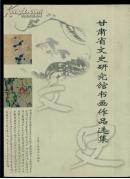 甘肃省文史研究馆书画作品选集
文
史